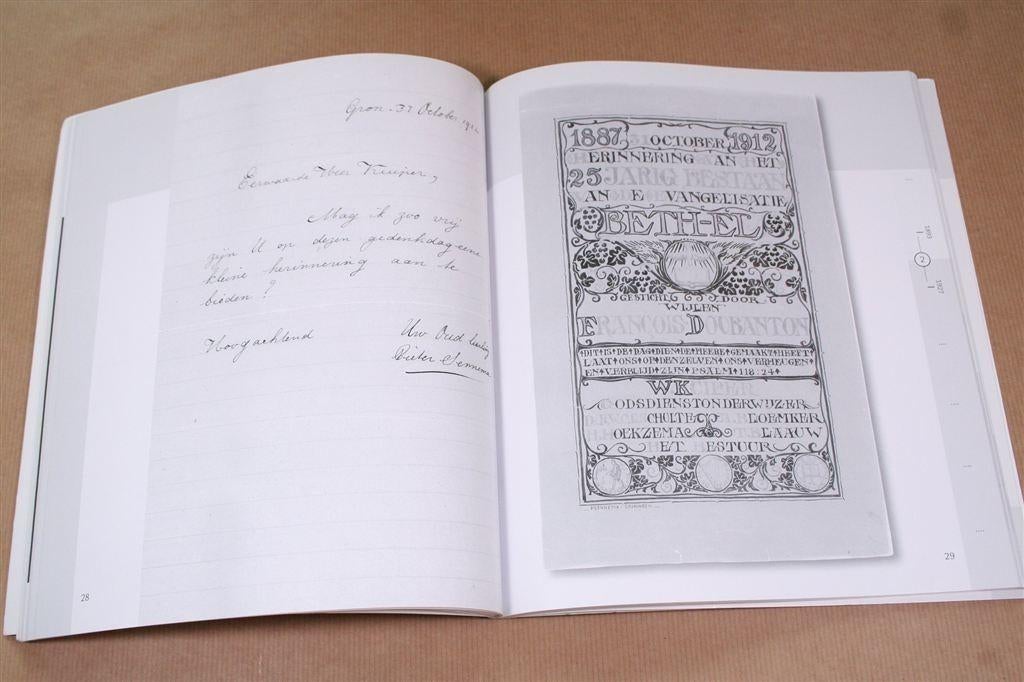 Gron. 31 October 1912
Eerwaarde Heer Kuiper,
Mag ik zoo vrij
zijn U op dezen gedenkdag eene
kleine herinnering aan te
bieden?
Hoogachtend
Uw Oud leerling
Pieter Sennema
28
1887 31 OCTOBER 1912
HERINNERING AAN HET
25 JARIG BESTAAN
VAN DE EVANGELISATIE
BETH-EL
GESTICHT DOOR
WIJLEN
FRANCOIS DOUBANTON
DIT IS DE DAG DIEN DE HEERE GEMAAKT HEEFT
LAAT ONS OP DENZELVEN ONS VERHEUGEN
EN VERBLIJD ZIJN PSALM 118:24
W K
GODSDIENSTONDERWIJZER
SCHOLTE BLOEMKER
HOEKZEMA T. BLAAUW
HET BESTUUR
1893
2
1927
29